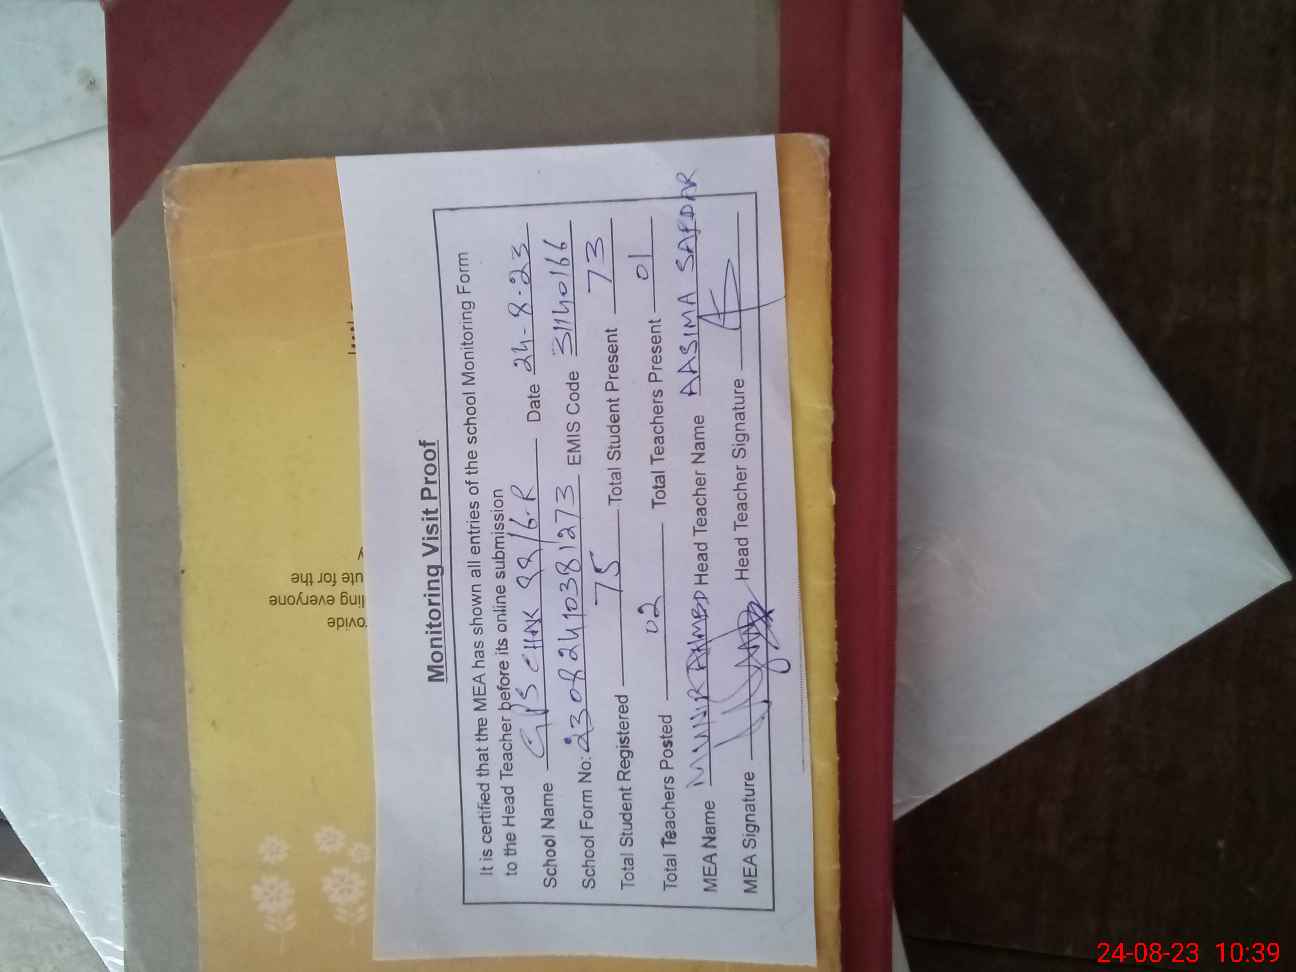 Monitoring Visit Proof
It is certified that the MEA has shown all entries of the school Monitoring Form
to the Head Teacher before its online submission
School Name GPS CHAK 22/6.R Date 24-8.23
School Form No: 23082410381273 EMIS Code 31140166
Total Student Registered 75 Total Student Present 73
Total Teachers Posted 02 Total Teachers Present 01
MEA Name MUNIR AHMED Head Teacher Name AASIMA SAFDAR
MEA Signature Head Teacher Signature
ute for the
ling everyone
ovide
24-08-23 10:39